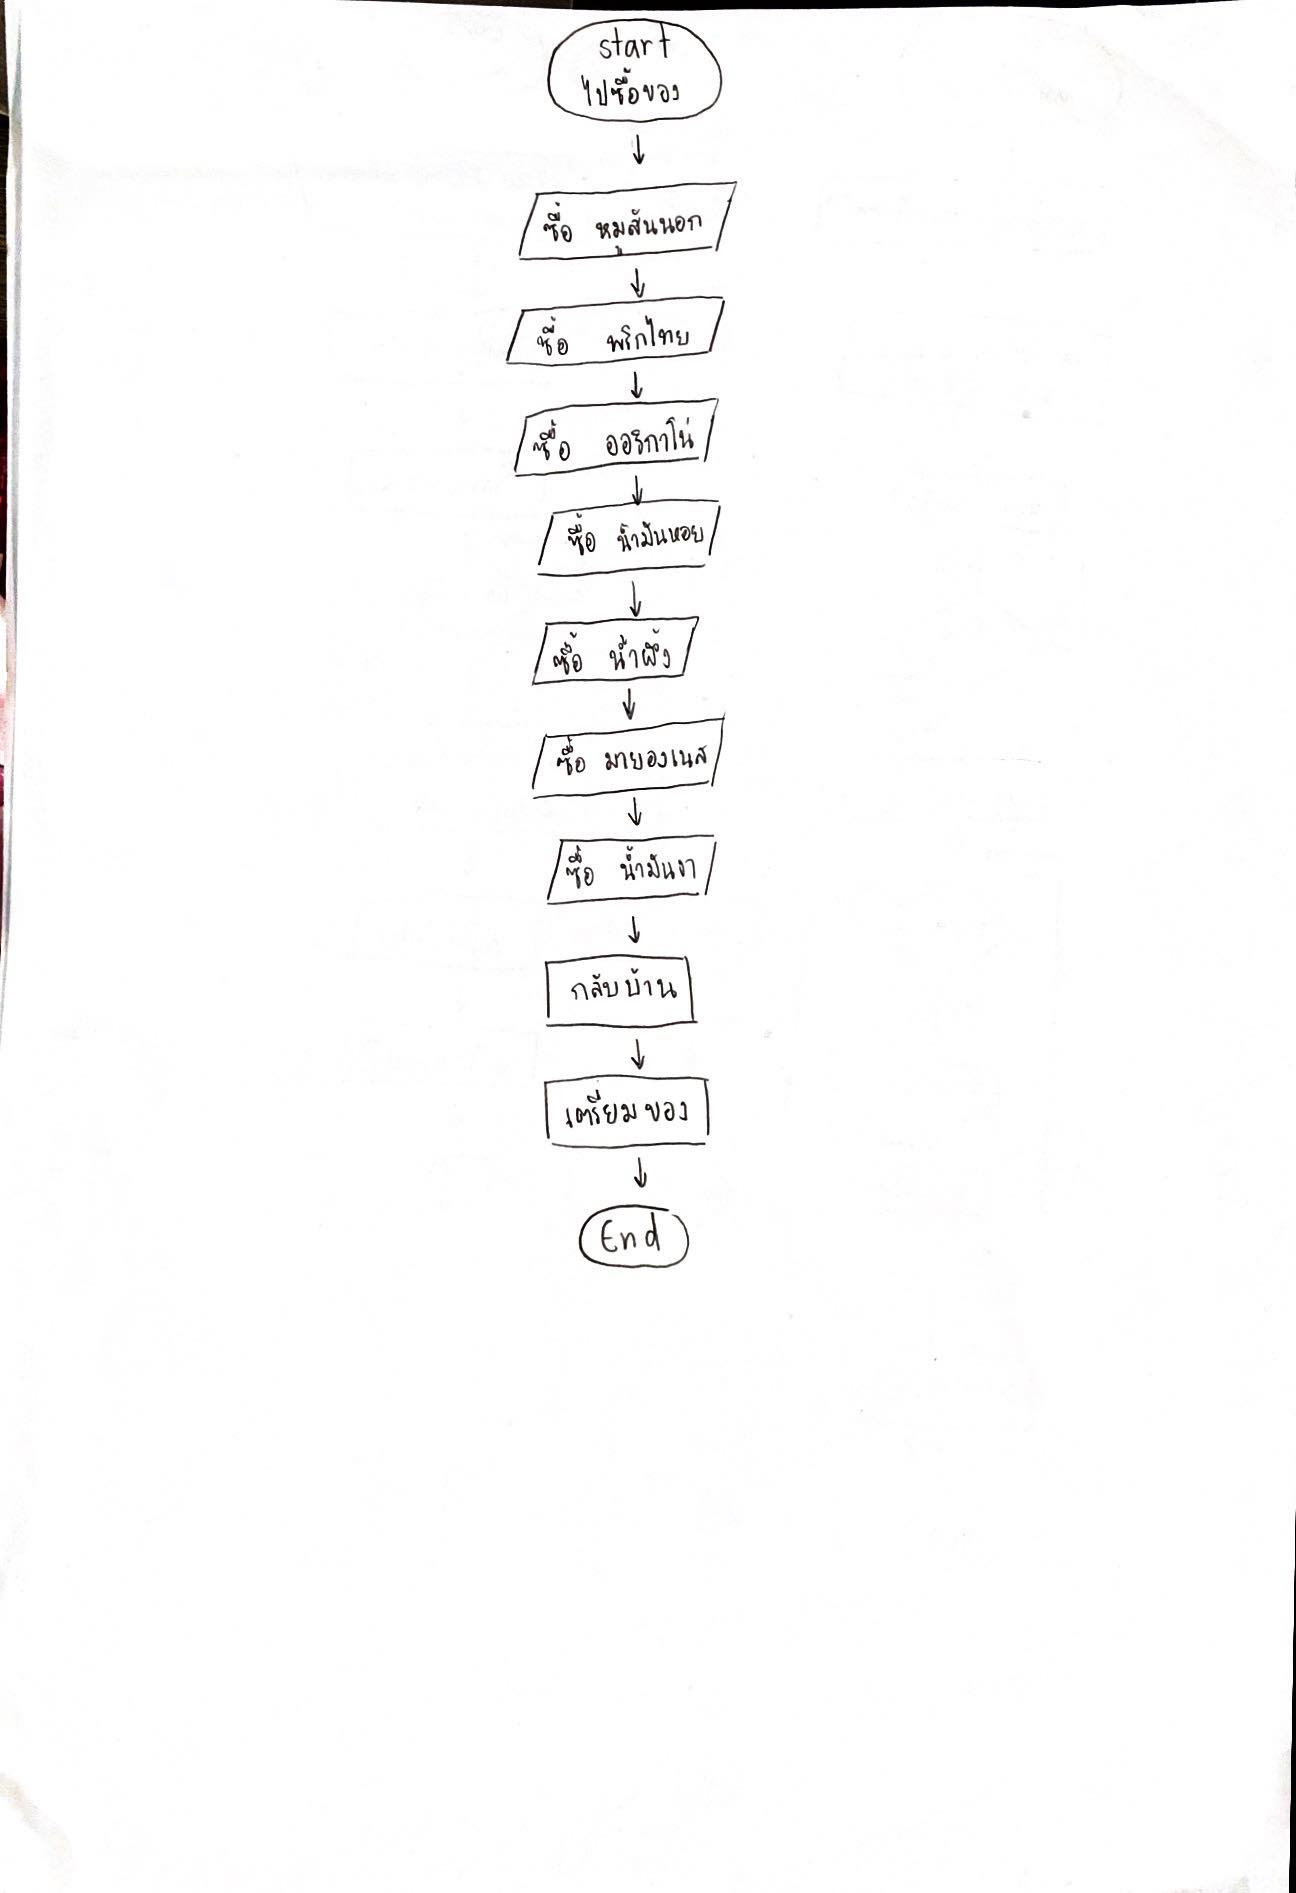 start
ไปซื้อของ
ซื้อ หมูสันนอก
ซื้อ พริกไทย
ซื้อ ออริกาโน่
ซื้อ น้ำมันหอย
ซื้อ น้ำผึ้ง
ซื้อ มายองเนส
ซื้อ น้ำมันงา
กลับบ้าน
เตรียมของ
End